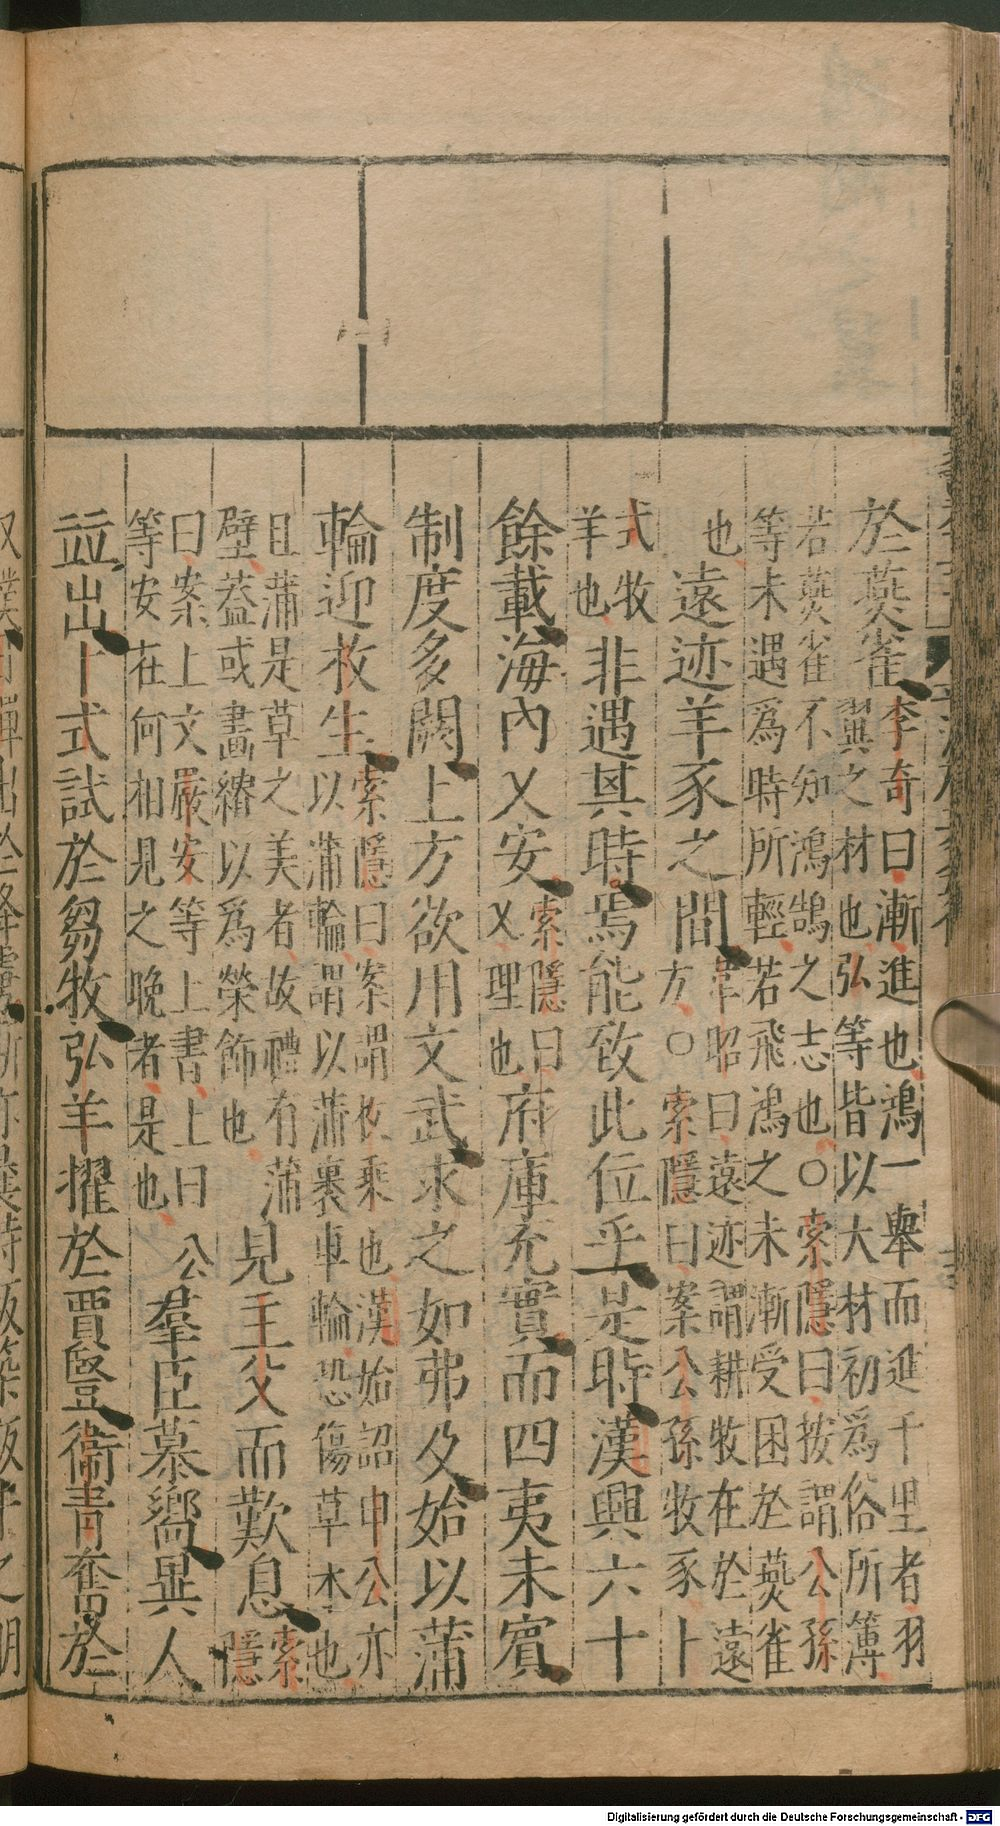 於燕雀李奇曰漸進也鴻一舉而進千里者羽
翼之材也弘等皆以大材初爲俗所簿
若燕雀不知鴻鵠之志也○索隱曰按謂公孫
等未遇爲時所輕若飛鴻之未漸受困於燕雀
也遠迹羊豕之間韋昭曰遠迹謂耕牧在於遠
方○索隱曰案公孫牧豕卜
式牧
羊也非遇其時焉能致此位乎是時漢興六十
餘載海內乂安索隱曰
乂理也府庫充實而四夷未賓
制度多闕上方欲用文武求之如弗及始以蒲
輪迎枚生索隱曰案謂枚乘也漢始詔申公亦
以蒲輪謂以蒲裹車輪恐傷草木也
且蒲是草之美者故禮有蒲
璧蓋或畫繢以爲榮飾也見主父而歎息索
隱
曰案上文嚴安等上書上曰公
等安在何相見之晚者是也羣臣慕嚮異人
並出卜式試於芻牧弘羊擢於賈豎衞青奮於
Digitalisierung gefördert durch die Deutsche Forschungsgemeinschaft - DFG